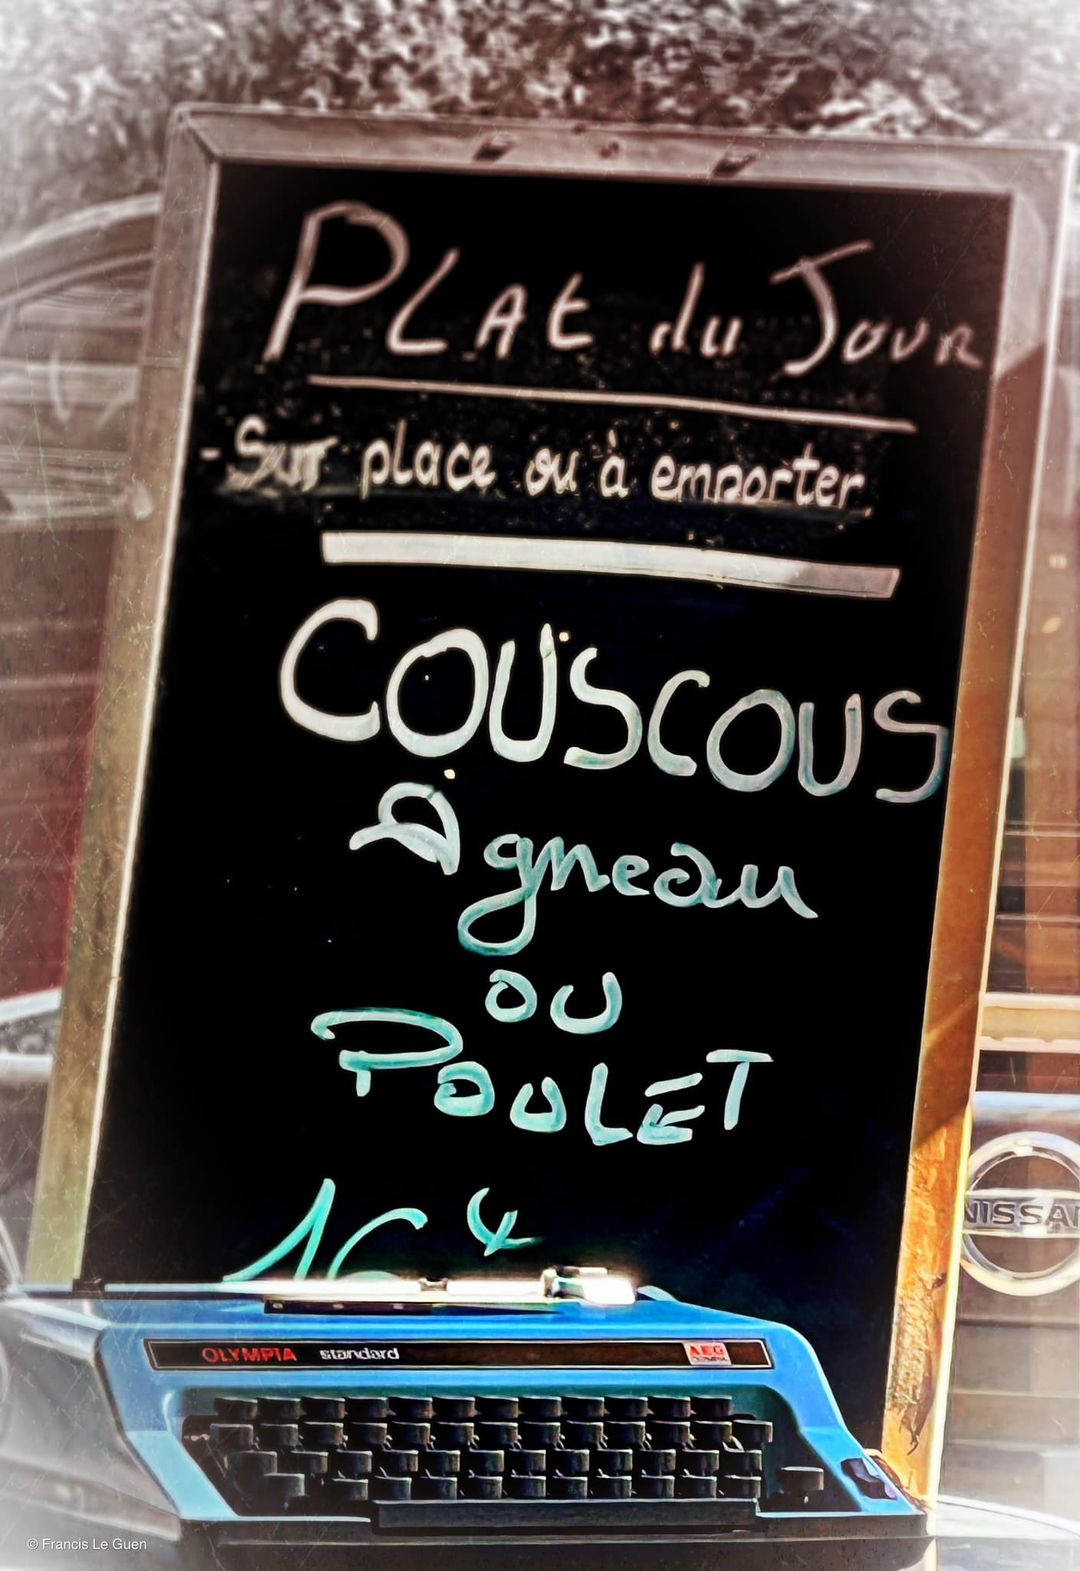 PLAt du Jour
- Sur place ou à emporter
COUSCOUS
Agneau
ou
POULET
NISSAN
OLYMPIA standard AEG
© Francis Le Guen